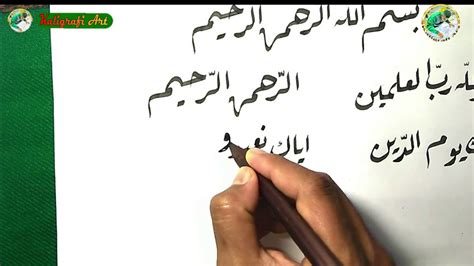 Kaligrafi Art
بسم الله الرحمن الرحيم
لله ربّ العلمين الرّحمن الرّحيم
يوم الدّين اياك